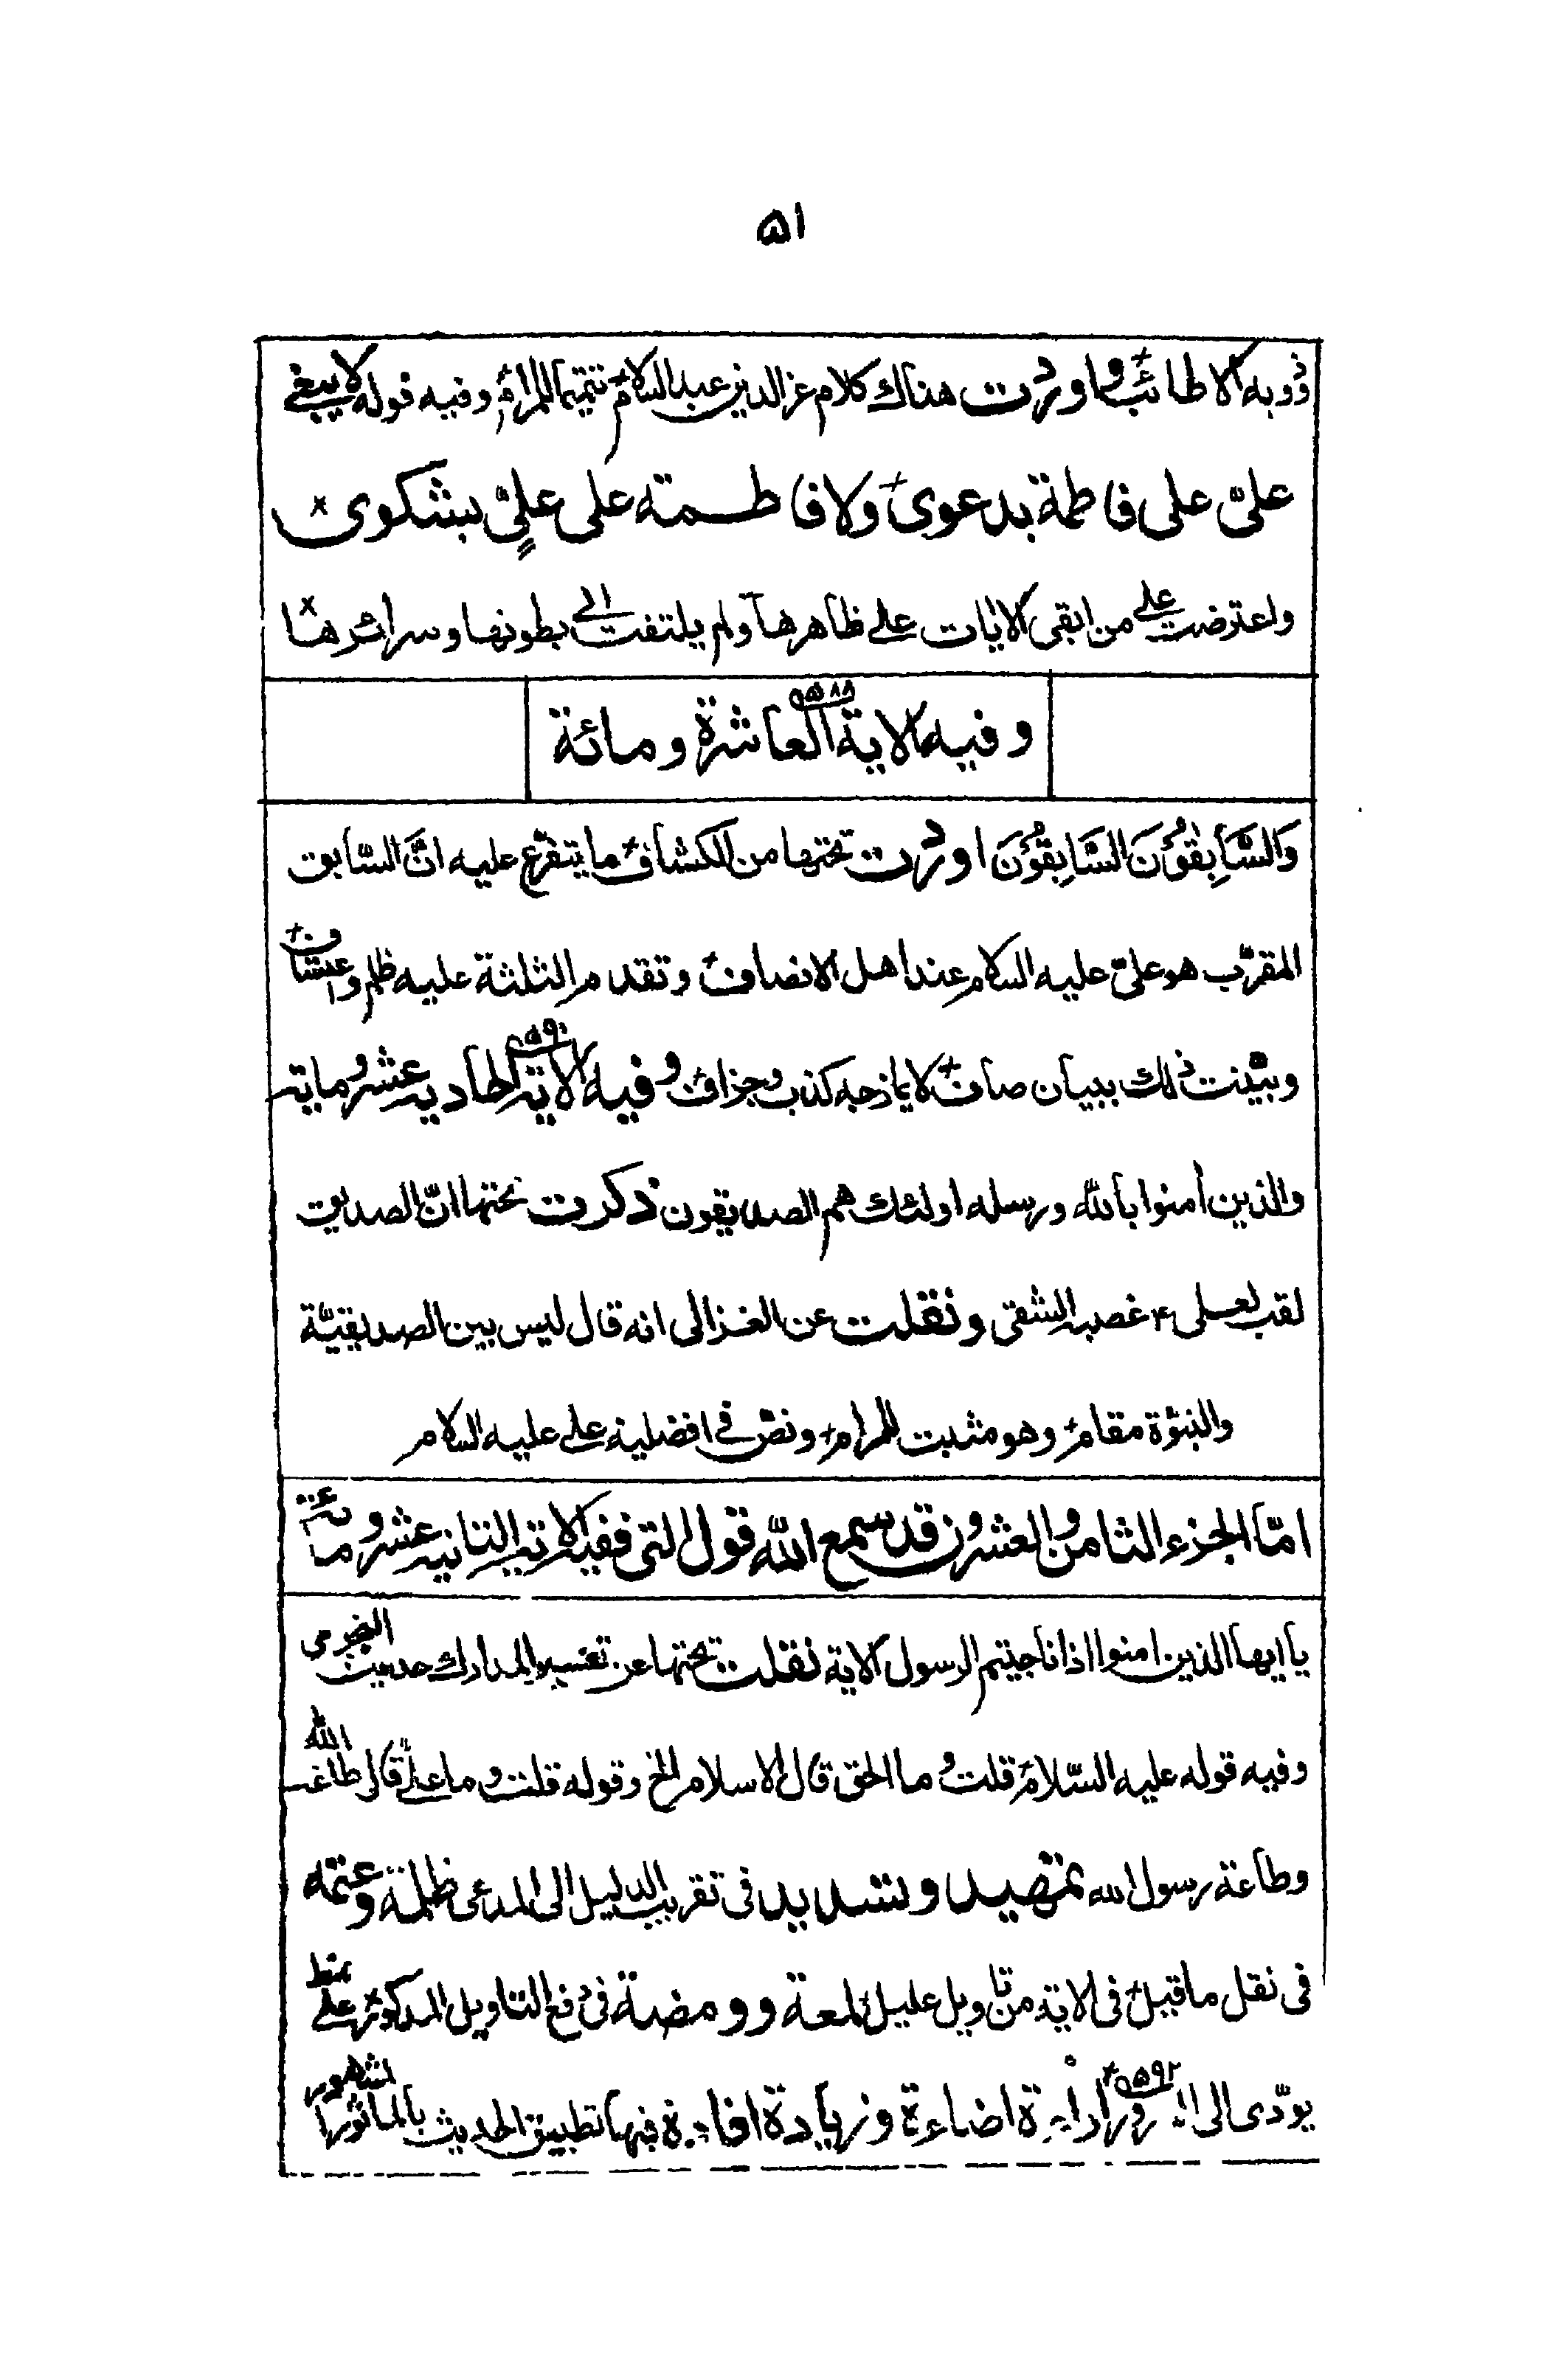 ۵۱
ذوبه الاطائب واوردت هناك كلام عز الدين عبد السلام تتميما للمرام وفيه قوله لا يبغي
عليّ على فاطمة بدعوى ولا فاطمته على عليٍّ بشكوى
واعترضت على من ابقى الايات على ظاهرها ولم يلتفت الى بطونها وسرائرها
۵۵۸۸
وفيه الاية العاشرة ومائة
وَالسَّابِقُوْنَ السَّابِقُوْنَ اوردت تحتها من الكشاف ما يتفرّع عليه انَّ السّابق
المقرّب هو عليّ عليه السلام عند اهل الانصاف وتقدم الثلثة عليه ظلم واعتساف
وبيّنت ذلك ببيان صاف لا يمازجه كذب وجزاف وفيه الاية الحاديه عشر ومایته
والذين آمنوا بالله ورسله اولئك هم الصديقون ذكرت تحتها انّ الصديق
لقب لعلى ۴ غصبه الشقى ونقلت عن الغزالى انه قال ليس بين الصديقيّة
والنبوّة مقام وهو مثبت للمرام ونصّ في افضلية على عليه السلام
امّا الجزء الثامن والعشرون قد سمع الله قول التى ففيه الايته الثانيه عشر ومأئة
يا ايها الذين امنوا اذا ناجيتم الرسول الاية نقلت تحتها عن تفسير المدارك حديث النجوى
وفيه قوله عليه السّلام قلت وما الحق قال الاسلام الخ وقوله قلت وما علىّ قال طاعة الله
وطاعة رسول الله تمهيد وتشديد في تقريب الدليل الى المدعى ظلمة وعتمه
فى نقل ما قيل فى الاية من تاويل عليل لمعة وومضة فى دفع التاويل المذكور على نمط
يودّى الى ۵۵۹۲ اضاءة وزيادة افادة فيها تطبيق الحديث بالماثور المشهور